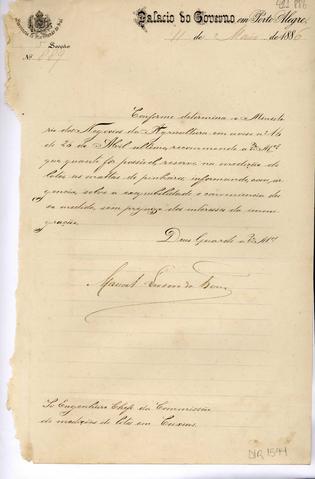 Palacio do Governo em Porto Alegre,
11 de Maio de 1886
5ª Secção
Nº
Conforme determina o Ministe
rio dos Negocios da Agricultura em aviso nº 16
de 26 de Abril ultimo, recommendo a Vmcê
que quanto for possivel reserve na medição de
lotes as mattas de pinhaes, informando com ur
gencia sobre a exequibilidade e conveniencia des
sa medida, sem prejuizo dos interesses da immi
gração.
Deus Guarde a Vmcê
Manoel
Sr Engenheiro Chefe da Commissão
de medições de lotes em Caxias.